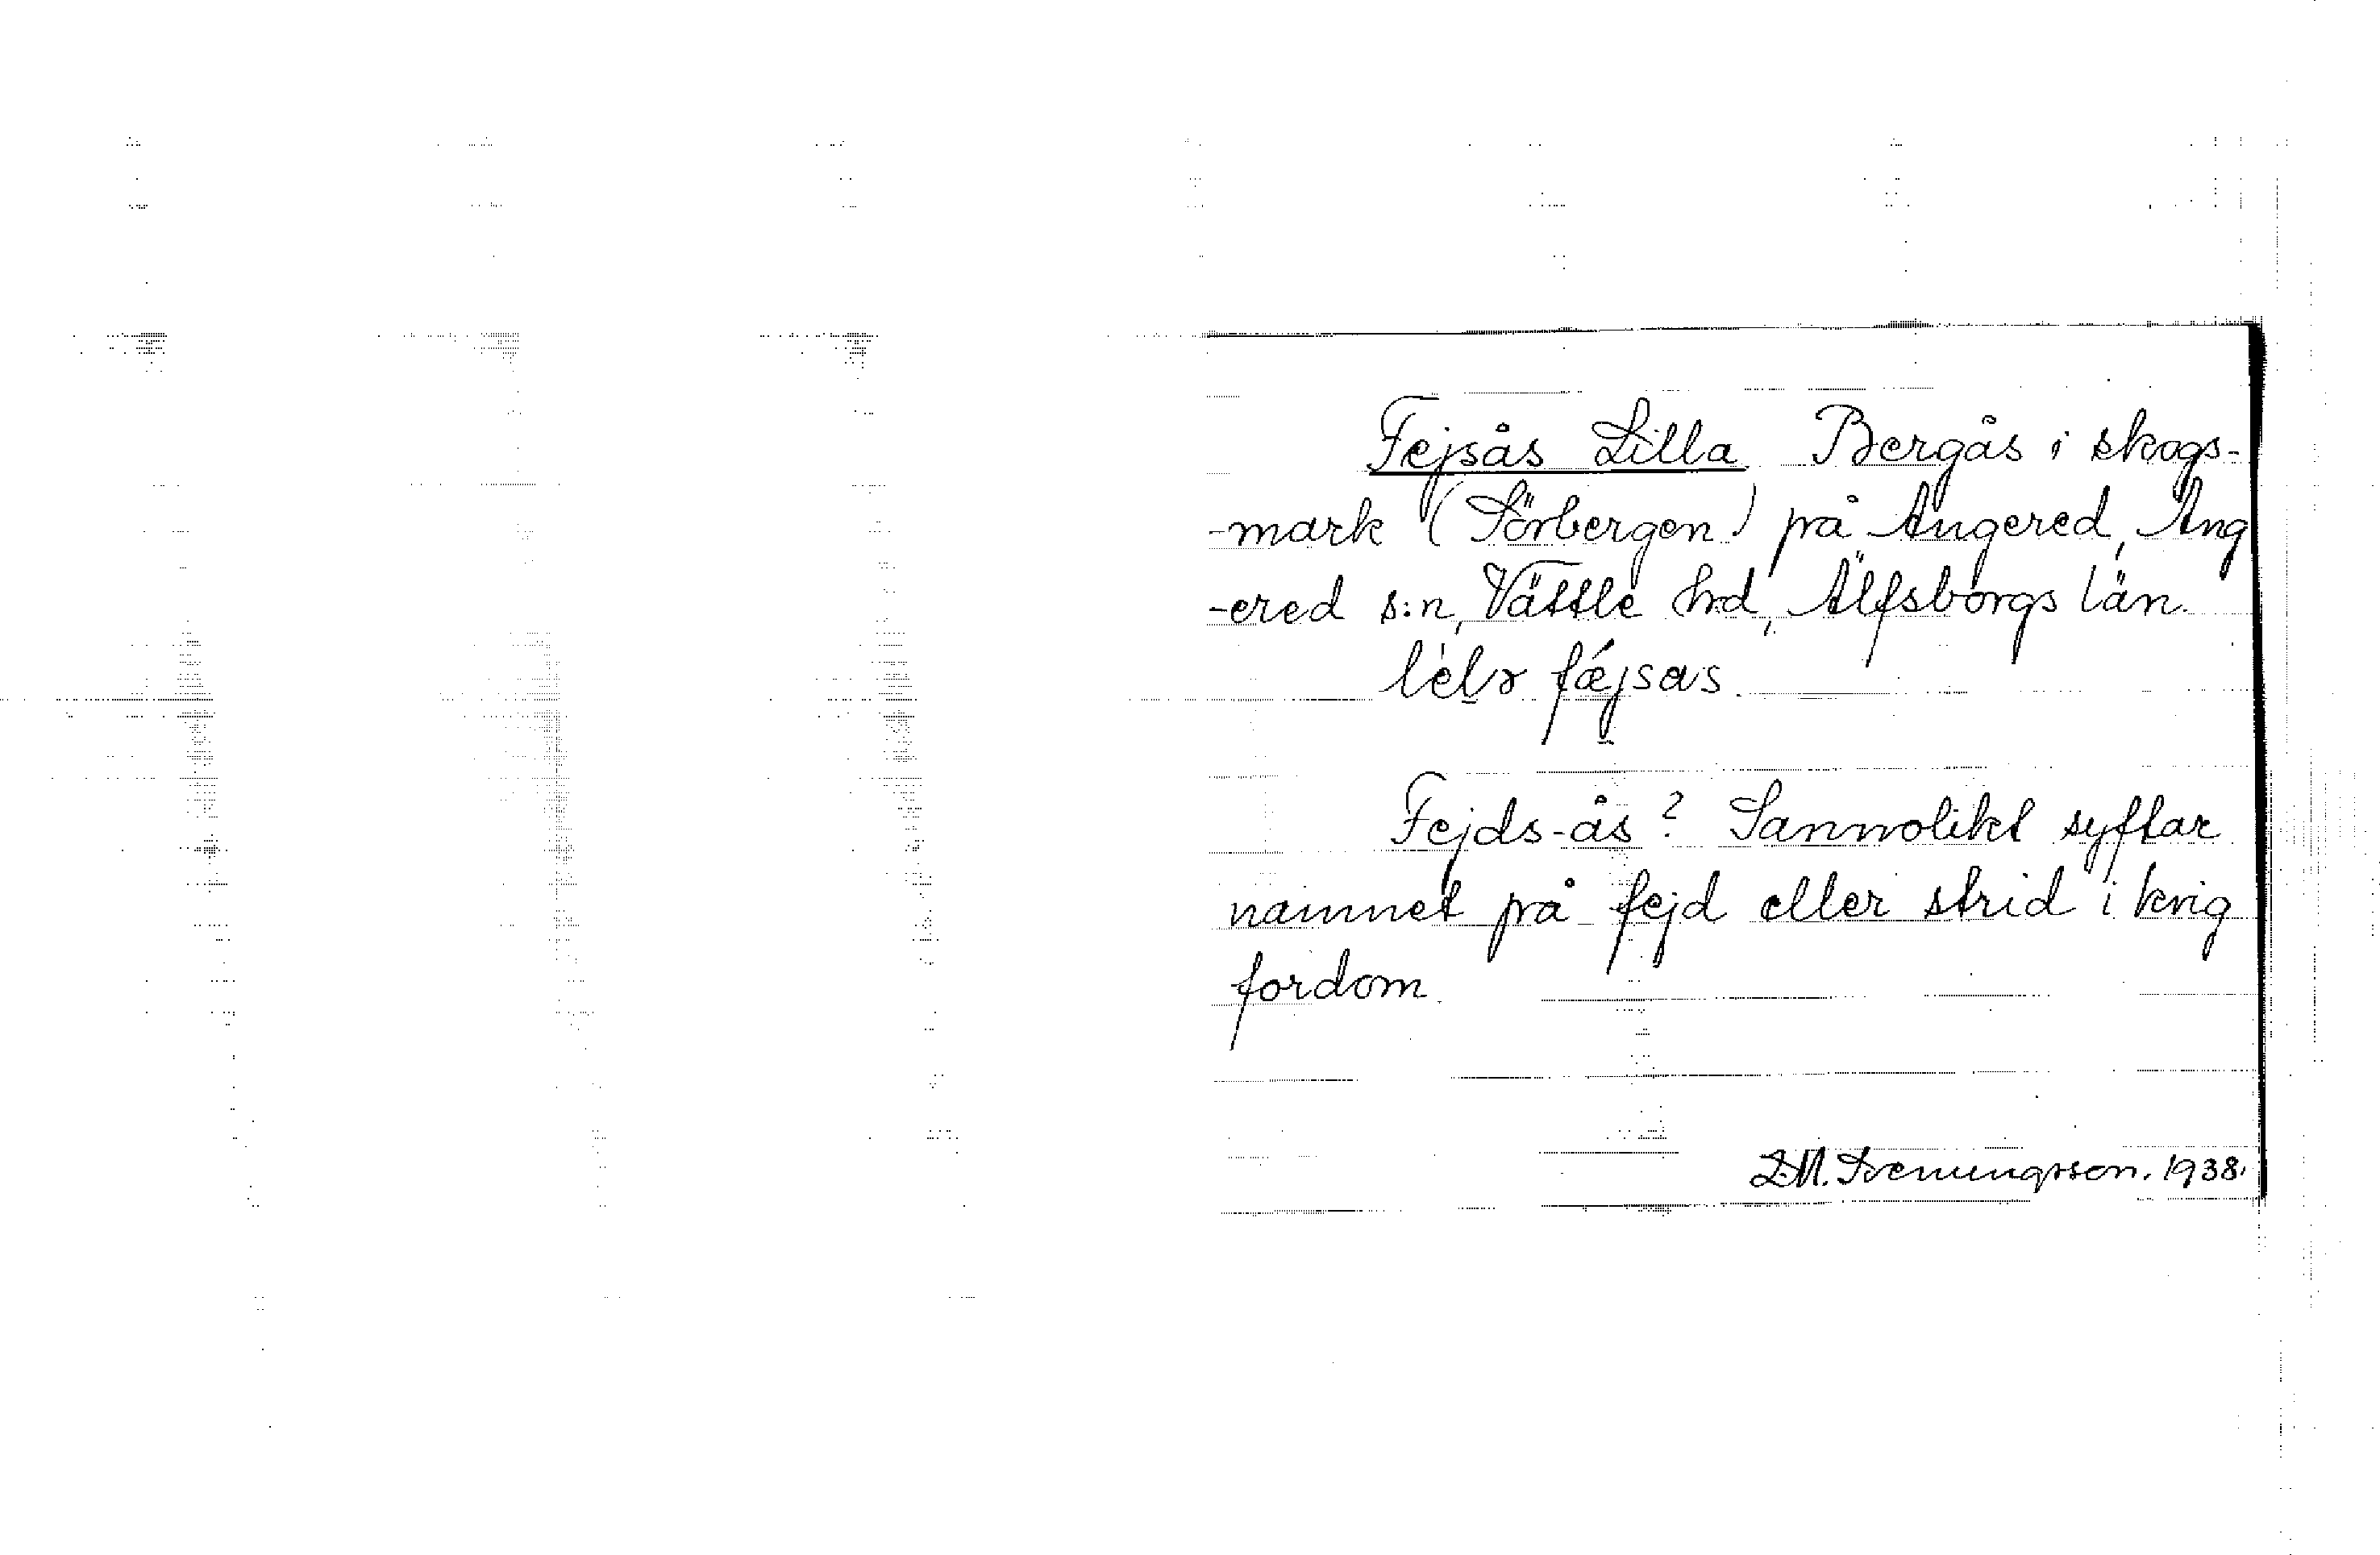 Fejsås Lilla. Bergås i skogs-
-mark (Sörbergen) på Angered, Ang
-ered s:n, Vättle hd, Älfsborgs län.
fǽjsas.
Fejds-ås? Sannolikt syftar
namnet på fejd eller strid i krig
fordom.
1938.